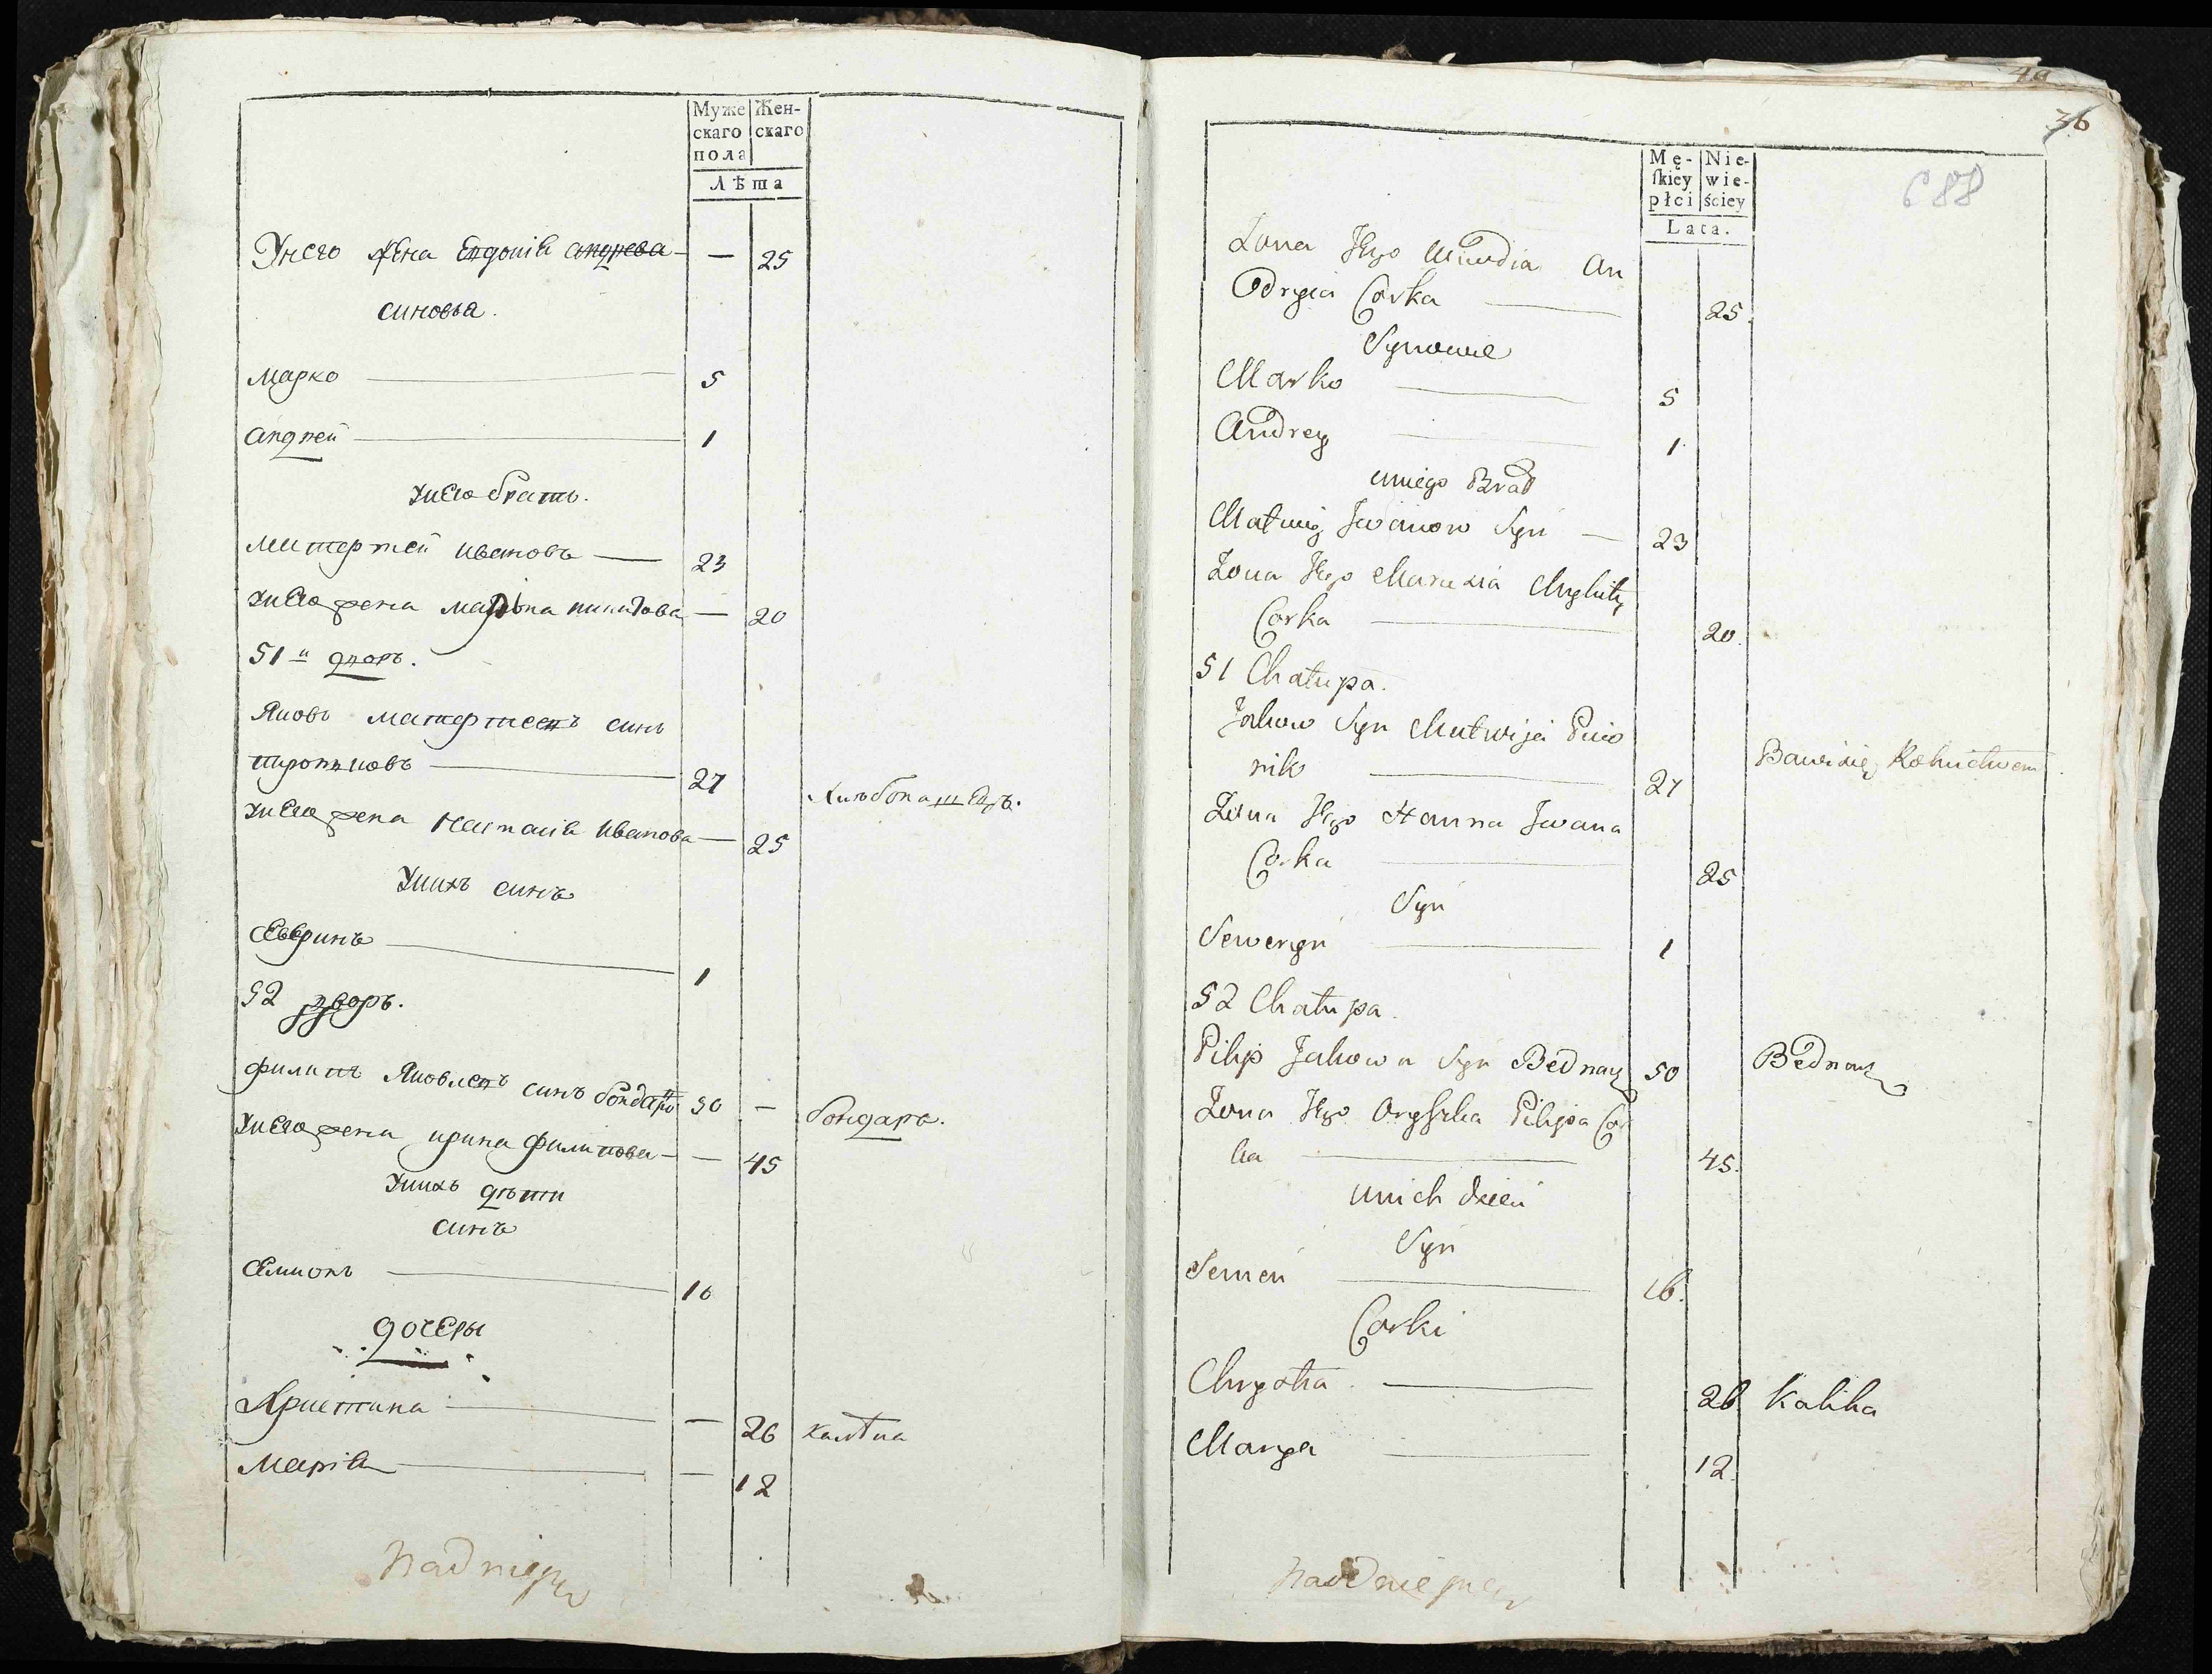 Муже Жен-
скаго скаго
пола
Лѣта
Унего жена Евдокія андреева — 25
синовья.
Марко 5
андрей 1
унего братъ.
Матвей Ивановъ 23
унего жена Марѣна никитова — 20
51 й дворъ.
Яковъ матвеевъ синъ
27
хлѣбопашецъ.
унего жена Наталія Иванова — 25
Унихъ синъ
Севѣринъ 1
52 дворъ.
Филипъ Яковлевъ синъ бондарь 50 — бондарь.
унего жена ирина филипова — 45
Унихъ дѣти
синъ
Семионъ 16
дочеры
Христина — 26 калѣка
Марія — 12
40
36
688
Mę- Nie-
ſkiey wie-
płci ściey
Lata.
Zona Jego An
dryia Corka 25.
Synowie
Marko 5
Andrey 1
uniego Brat
Matwiy Iwanow Syn — 23
Zona Jego Mykity
Corka 20.
51 Chałupa.
Jakow Syn Matwija Piro
nik 27 Bawi się Rolnictwem
Zona Jego Hanna Iwana
Corka 25
Syn
Seweryn 1
52 Chałupa.
Pilip Jakowa Syn Bednarz 50 Bednarz
Zona Jego Oryszka Pilipa Cor
ka 45.
unich dzieci
Syn
Semen 16.
Corki
Chrystia 26 Kalika
Marya 12.